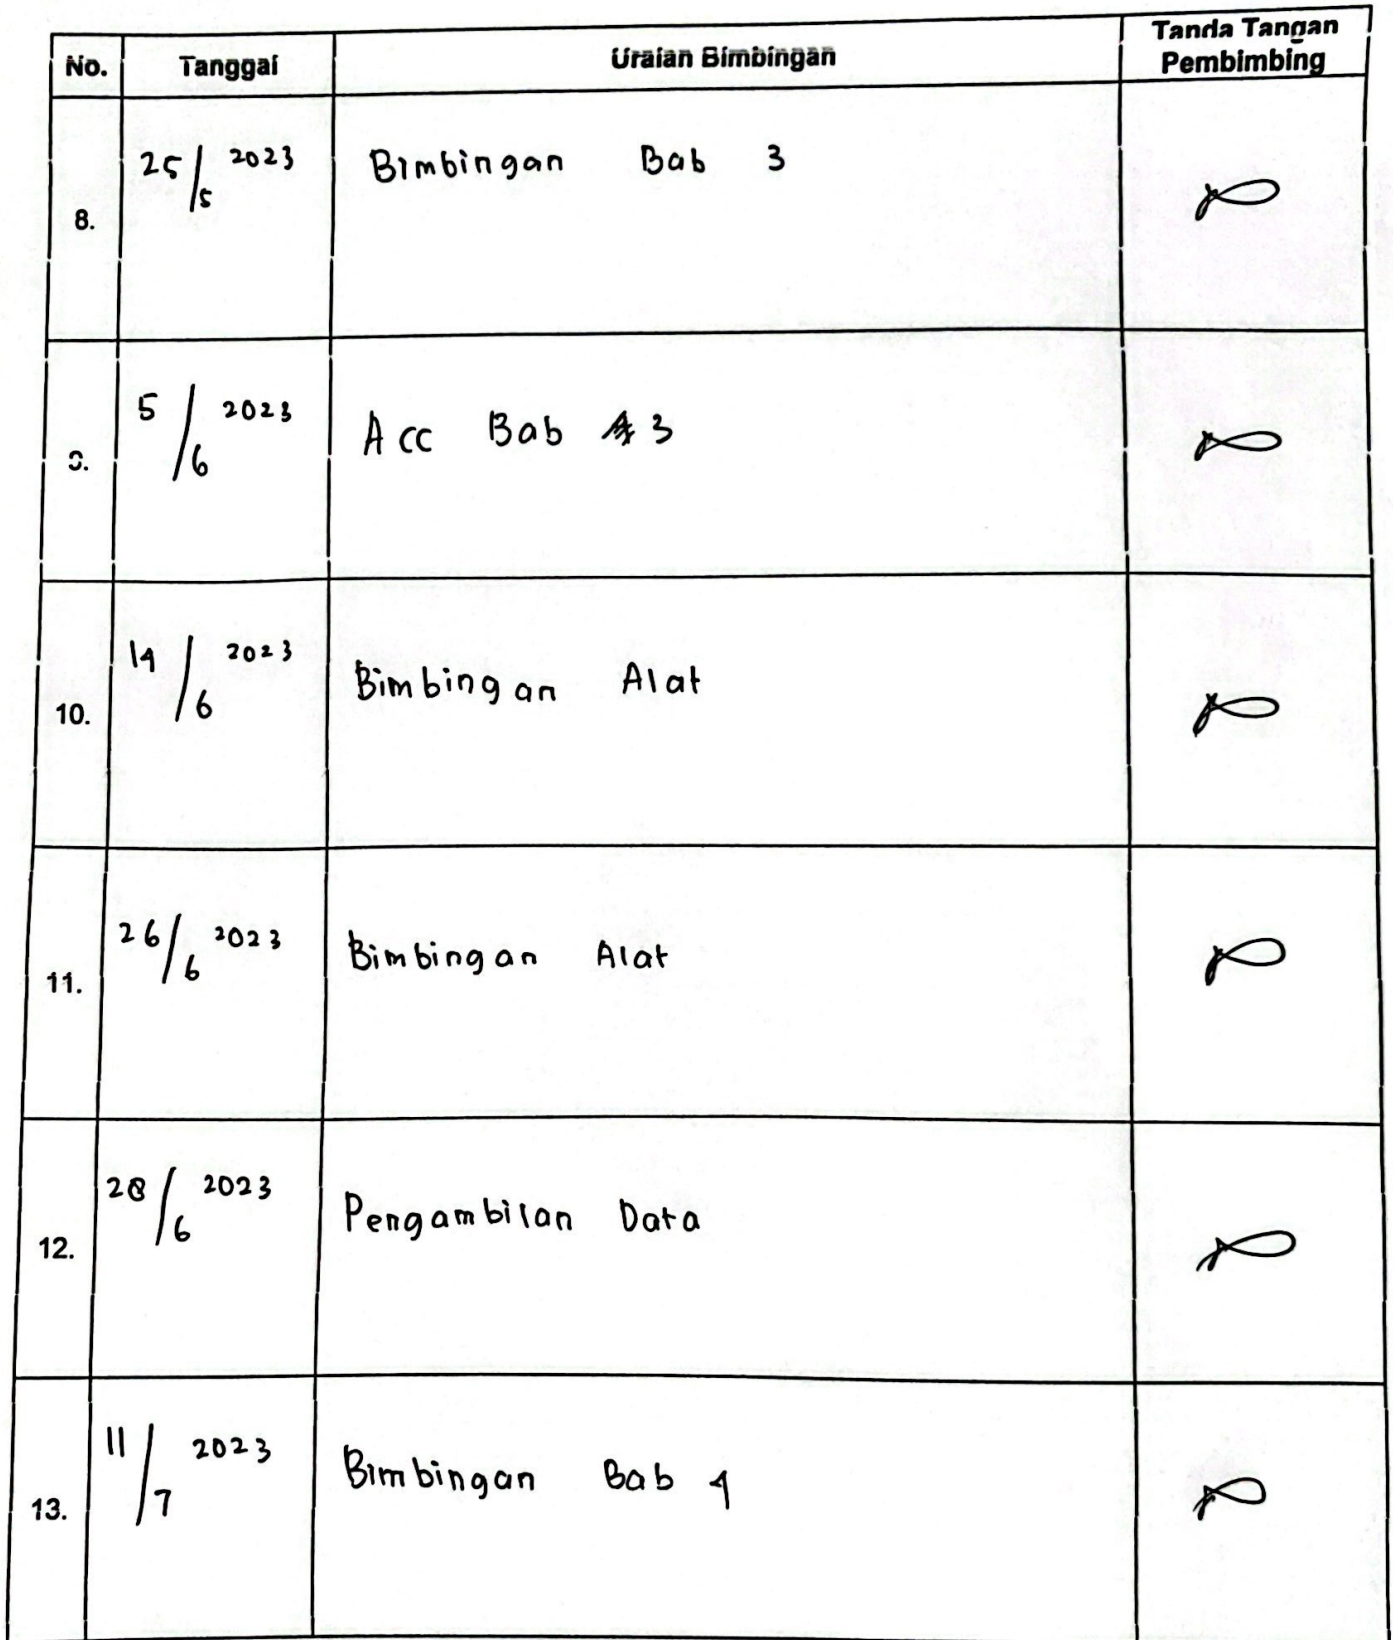 No. Tanggal Uraian Bimbingan Tanda Tangan Pembimbing
8. 25/5 2023 Bimbingan Bab 3
9. 5/6 2023 Acc Bab 3
10. 14/6 2023 Bimbingan Alat
11. 26/6 2023 Bimbingan Alat
12. 28/6 2023 Pengambilan Data
13. 11/7 2023 Bimbingan Bab 4